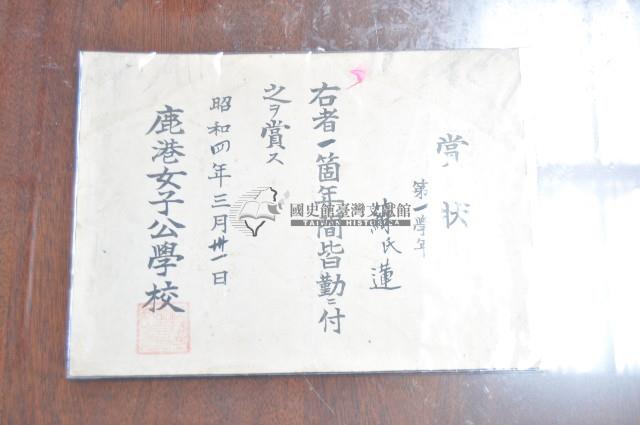 賞狀
第一學年
氏蓮
右者一箇年間皆勤ニ付
之ヲ賞ス
昭和四年三月卅一日
鹿港女子公學校
國史館臺灣文獻館
TAIWAN HISTORICA